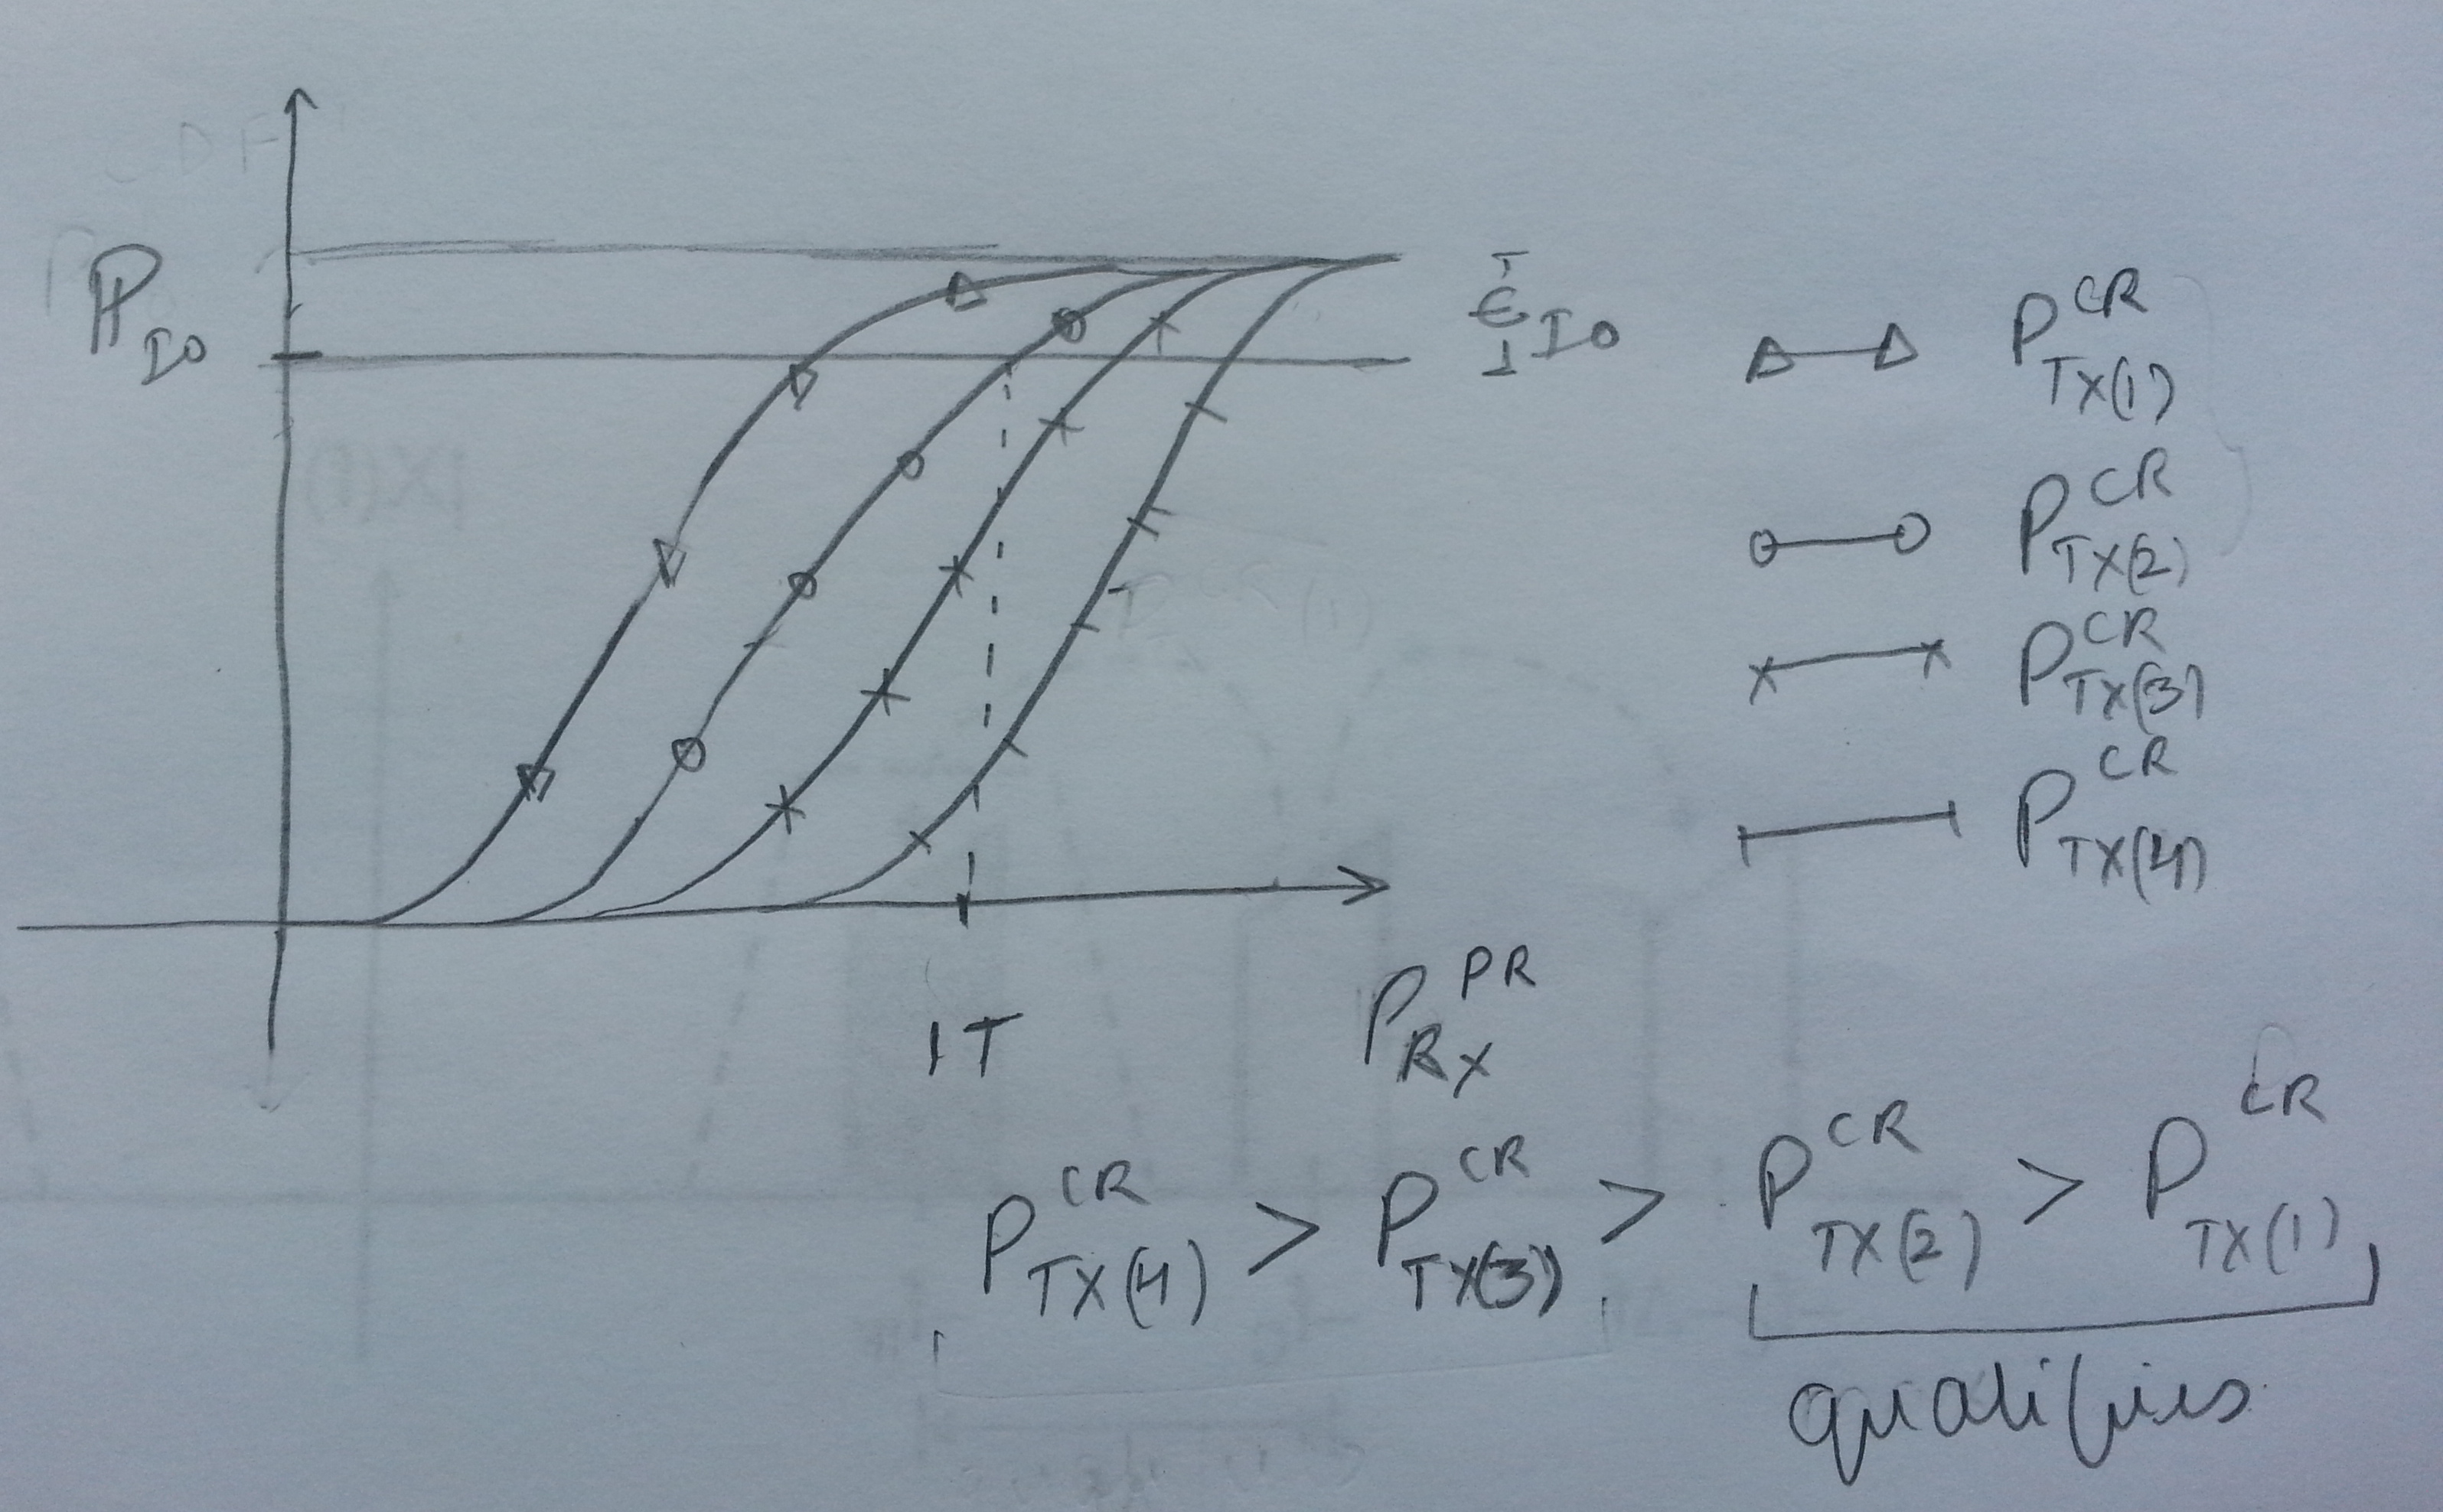 CDF
P_IO
ε_IO
P^CR_TX(1)
P^CR_TX(2)
P^CR_TX(3)
P^CR_TX(4)
IT
P^PR_RX
P^CR_TX(4) > P^CR_TX(3) > P^CR_TX(2) > P^CR_TX(1)
qualifies